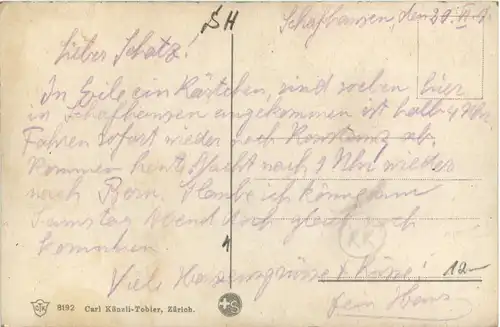 SH
Schafhausen, den 20. VI.
Lieber Schatz!
In Eile ein Kärtchen, sind soeben hier
in Schafhausen angekommen ist halb 4 Uhr
Fahren sofort wieder nach Konstanz ab
kommen heute Nacht nach 1 Uhr wieder
nach Bern. Glaube ich kann
Samstag Abend doch gleich noch
kommen.
Viele Herzensgrüsse & Küsse!
dein Hans
KK
12.-
8192 Carl Künzli-Tobler, Zürich.